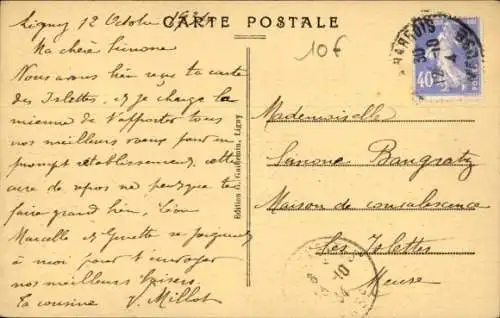 CARTE POSTALE
10€
Ligny 12 Octobre 1934
Ma chère Simone
Nous avons bien reçu ta carte
des Islettes, et je charge la
mienne de t'apporter tous
nos meilleurs vœux pour un
prompt rétablissement, cette
cure de repos ne peut que te
faire grand bien, Léon
Marcelle et Ginette se joignent
à moi pour t'envoyer
nos meilleurs baisers.
ta cousine V. Millot
Edition G. Gaudemin, Ligny
40
Mademoiselle
Simone Baugratz
Maison de convalescence
Les Islettes
Meuse